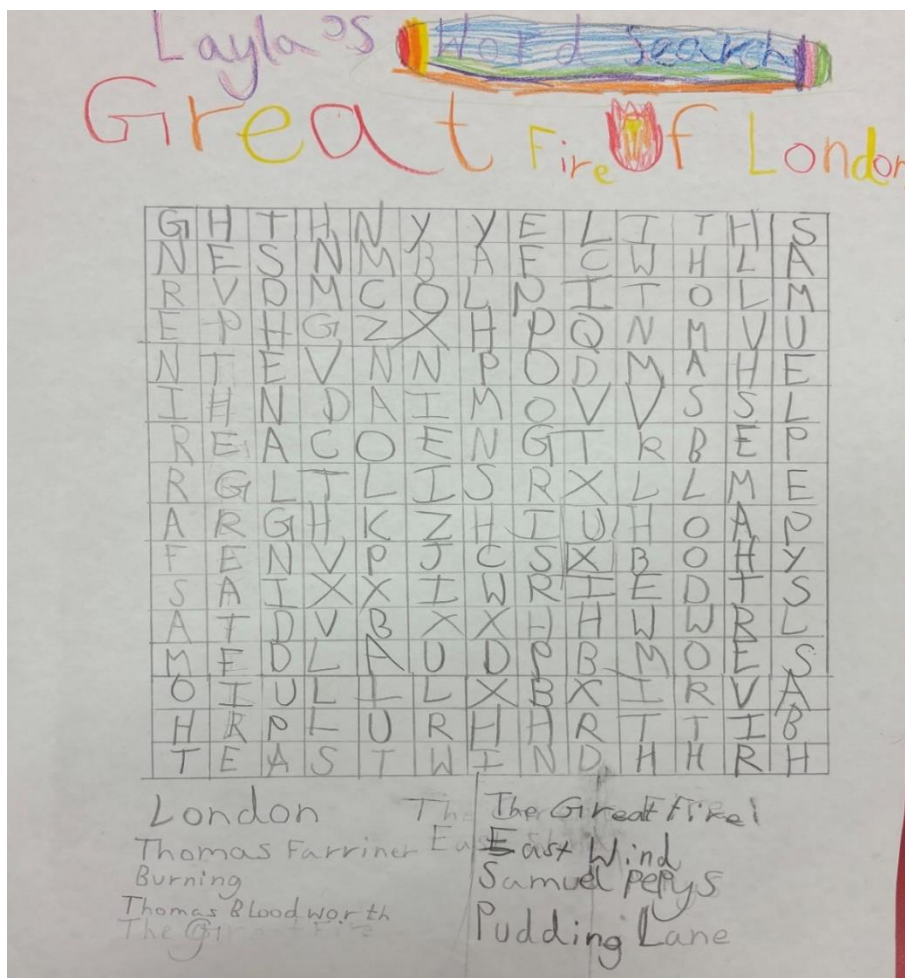 Layla's Word Search
Great Fire Of London
G H T H N Y Y E L I T H S
N E S N M B A F C W H L A
R V D M C O L N I T O L M
E P H G Z X H P Q N M V U
N T E V N N P O D M A H E
I H N D A I M O V V S S L
R E A C O E N G T R B E P
R G L T L I S R X L L M E
A R G H K Z H I U H O A P
F E N V P J C S X B O H Y
S A I X X I W R I E D T S
A T D V B X X H H W W R L
M E D L A U D P B M O E S
O I U L L L X B X I R V A
H R P L U R H H R T T I B
T E A S T W I N D H H R H
London
Thomas Farriner
Burning
Thomas Bloodworth
The Great Fire
The Great Fire!
East Wind
Samuel Pepys
Pudding Lane